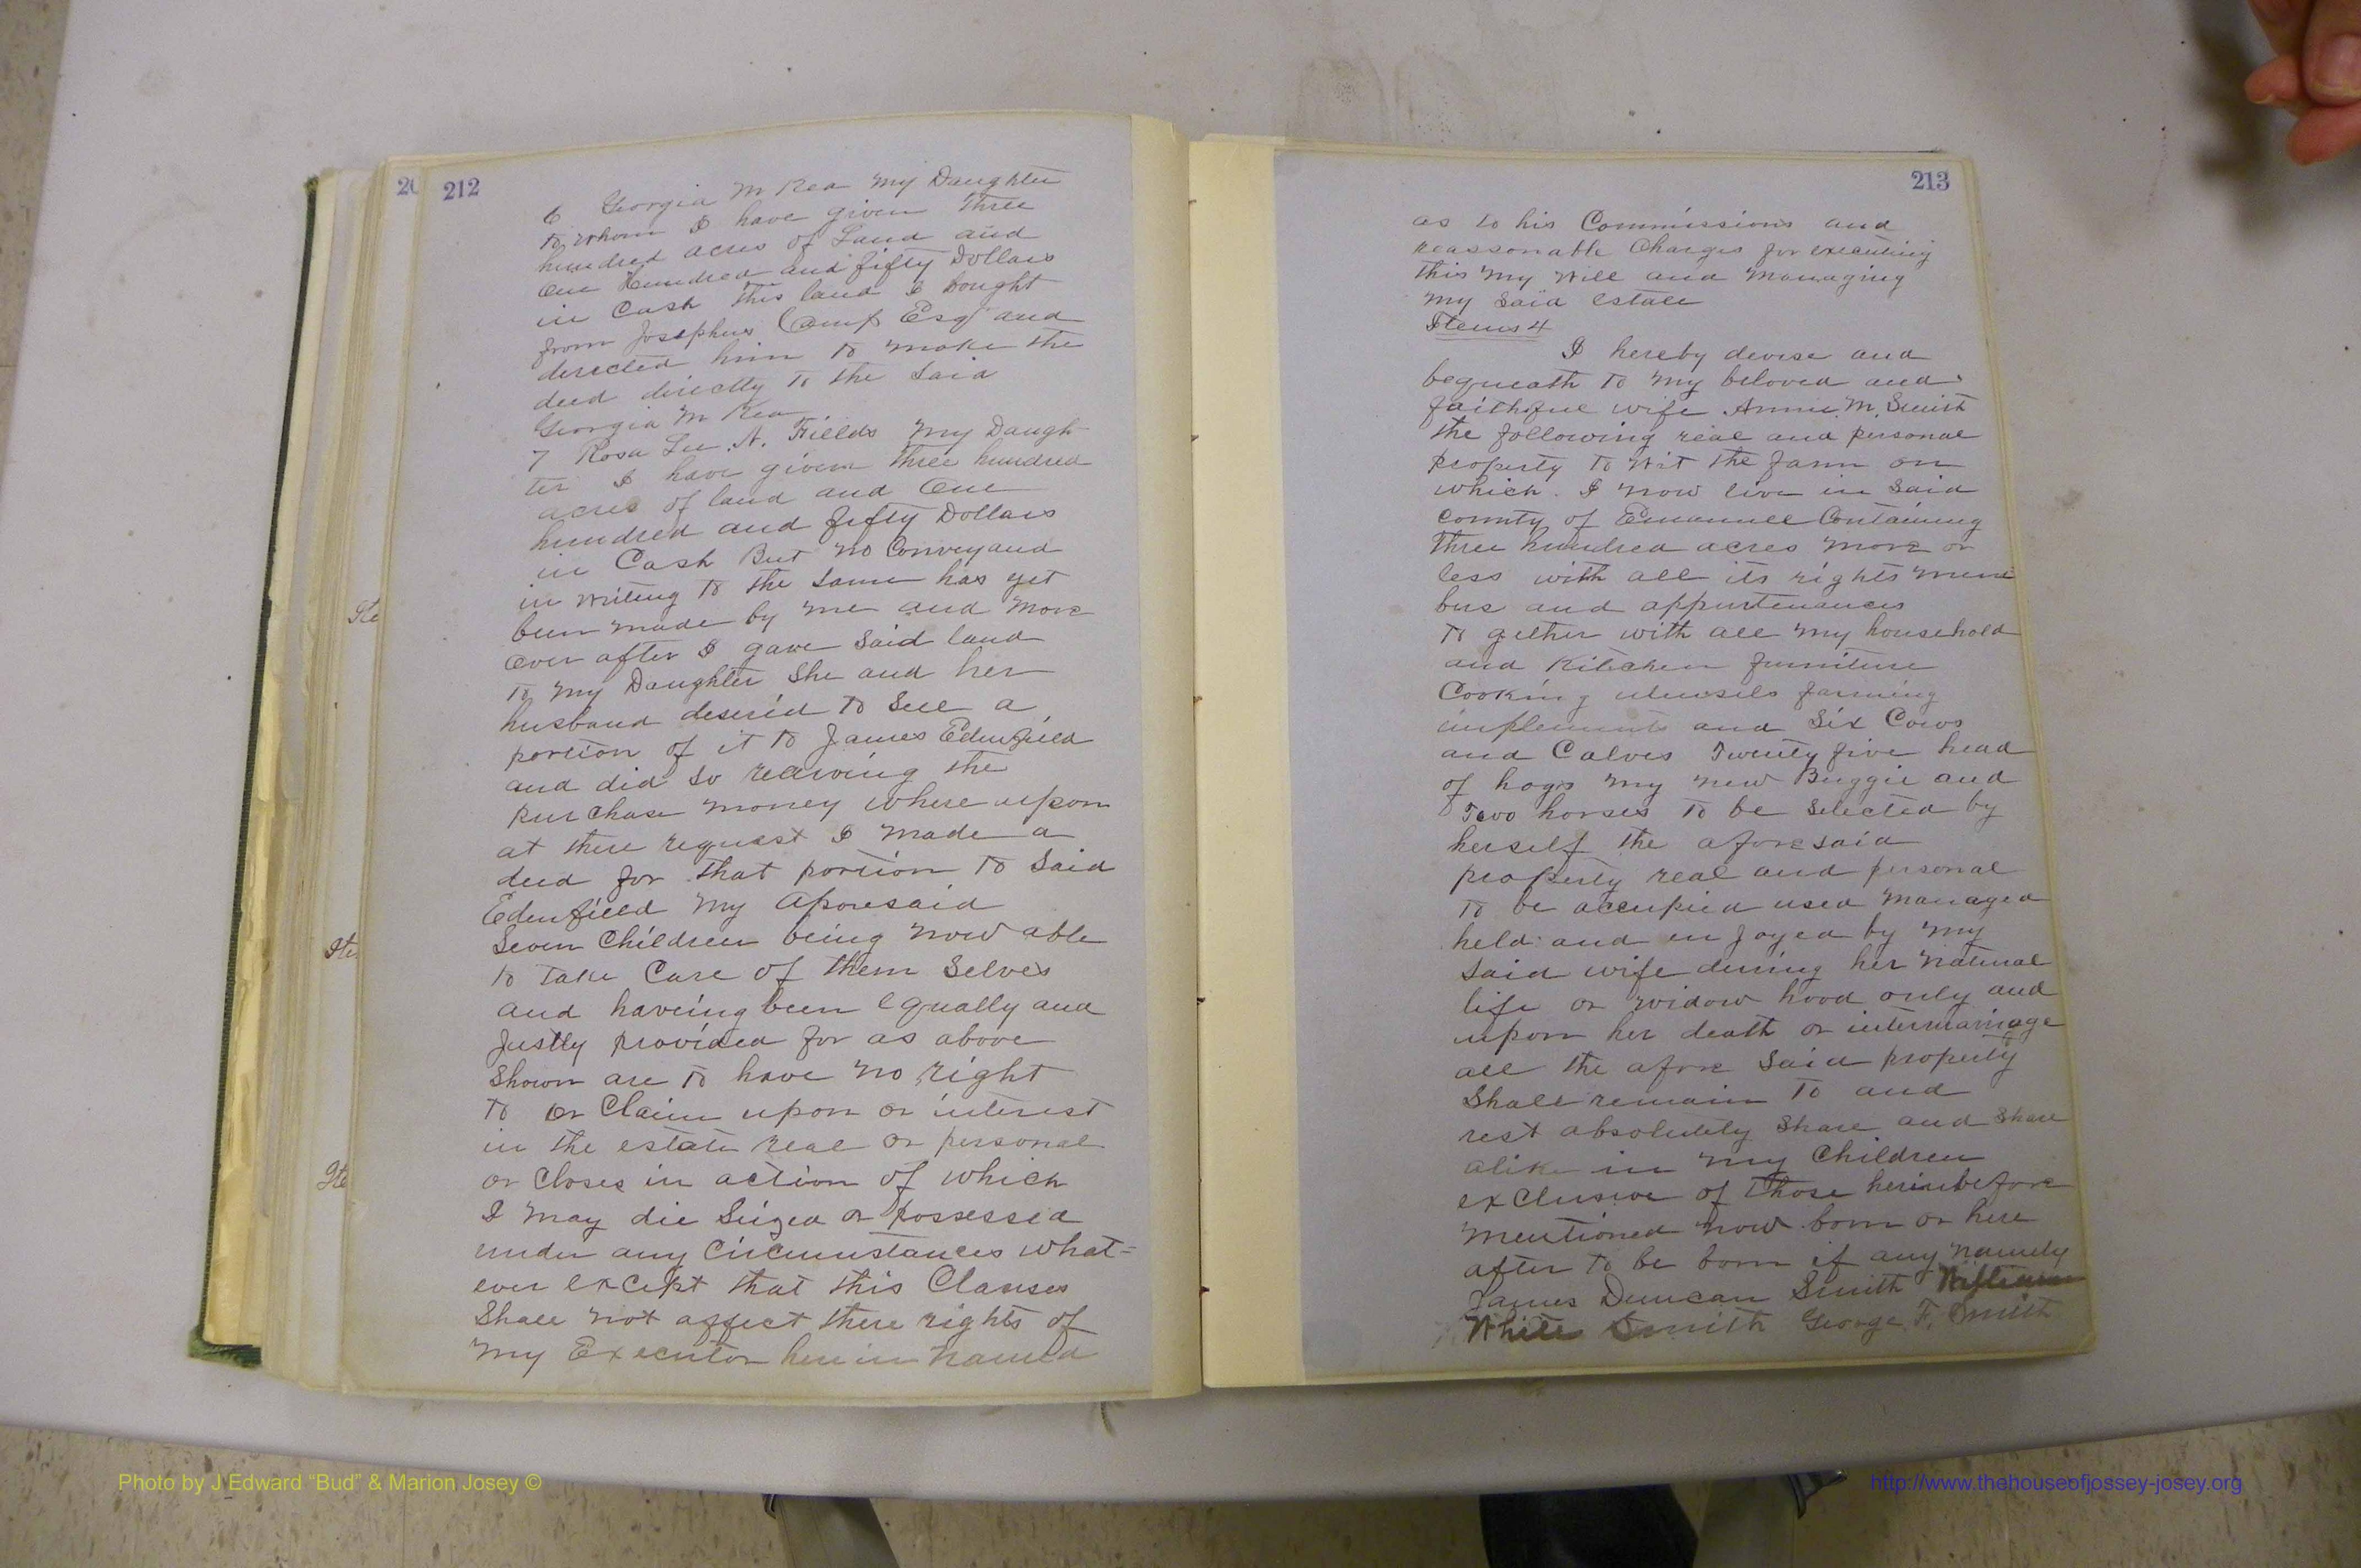 20
212
6 Georgia M Kea My Daughter
to whom I have given three
hundred acres of Land and
One Hundred and fifty Dollars
in Cash this land I bought
from Josephus Camp Esq and
directed him to make the
deed directly to the Said
Georgia M Kea
7 Rosa Lee N. Fields My Daugh
ter I have given three hundred
acres of land and One
hundred and fifty Dollars
in Cash But No Conveyand
in writing to the same has yet
been made by me and More
over after I gave said land
to my Daughter She and her
husband desired to Sell a
portion of it to James Edenfield
and did so receiving the
purchase money where upon
at there request I made a
deed for that portion to said
Edenfield My Aforesaid
Seven Children being now able
to take Care of them Selves
and haveing been Equally and
Justly provided for as above
Shown are to have no right
to or Claim upon or interest
in the estate real or personal
or Closes in action of which
I may die Seized or possessed
under any Circumstances what=
ever except that this Clauses
Shall not affect there rights of
my Executor herein named
Ite
Ite
Ite
213
as to his Commissions and
reassonable Charges for executing
this my Will and managing
my said Estate
Items 4
I hereby devise and
bequeath to my beloved and
faithful wife Annie M. Smith
the following real and personal
property to wit the farm on
which I now live in said
county of Emanuel Containing
three hundred acres more or
less with all its rights mem
bus and appurtenances
to gether with all my household
and Kitchen furniture
Cooking utensils farming
implements and Six Cows
and Calves Twenty five head
of hogs my new Buggie and
Two horses to be selected by
herself the aforesaid
property real and personal
to be occupied used managed
held and en joyed by my
said wife during her natural
life or widow hood only and
upon her death or intermarriage
all the afore said property
Shall remain to and
rest absolutely Share and Share
alike in my Children
exclusive of those hereinbefore
mentioned now born or here
after to be born if any namely
James Duncan Smith William
White Smith George F. Smith
Photo by J Edward “Bud” & Marion Josey ©
http://www.thehouseofjossey-josey.org